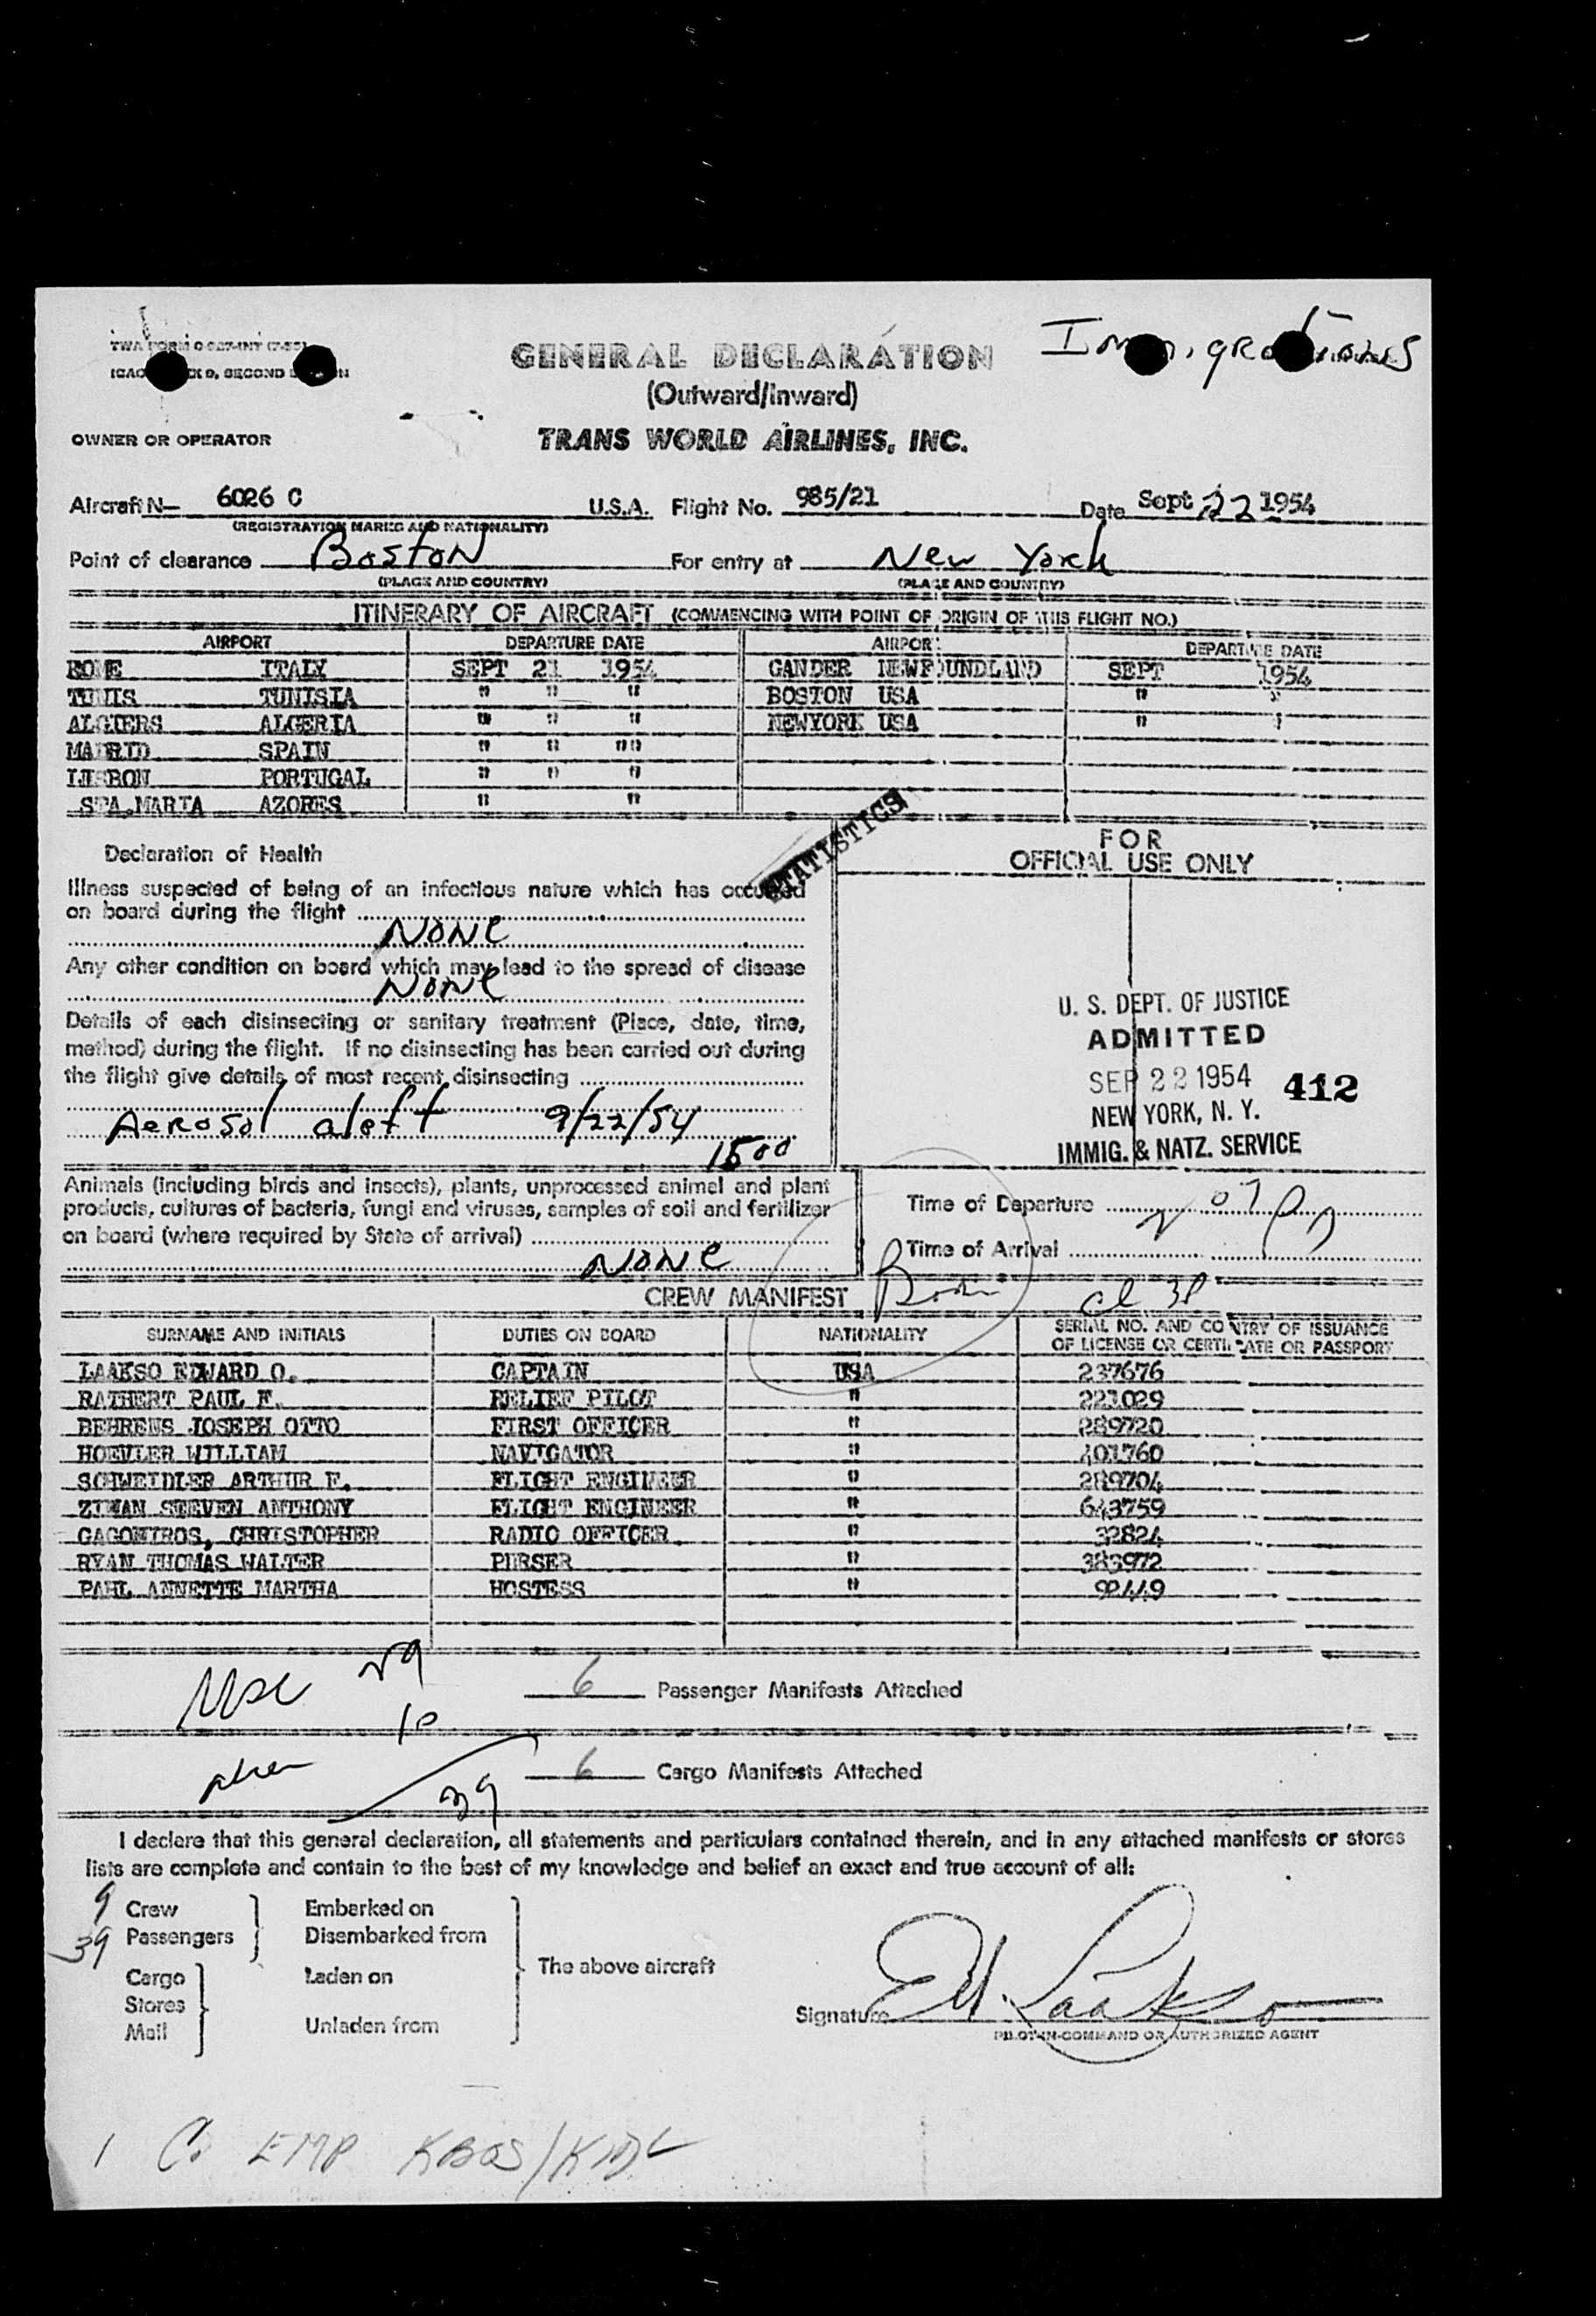 TWA FORM
ICAO SECOND
GENERAL DECLARATION
(Outward/Inward)
OWNER OR OPERATOR
TRANS WORLD AIRLINES, INC.
Aircraft N— 6026 C U.S.A. Flight No. 985/21 Date Sept 22 1954
(REGISTRATION MARKS AND NATIONALITY)
Point of clearance Boston For entry at New York
(PLACE AND COUNTRY) (PLACE AND COUNTRY)
ITINERARY OF AIRCRAFT (COMMENCING WITH POINT OF ORIGIN OF THIS FLIGHT NO.)
AIRPORT DEPARTURE DATE AIRPORT DEPARTURE DATE
ROME ITALY SEPT 21 1954 GANDER NEWFOUNDLAND SEPT 1954
TUNIS TUNISIA " " " BOSTON USA " "
ALGIERS ALGERIA " " " NEWYORK USA "
MADRID SPAIN " " ""
LISBON PORTUGAL " " "
STA.MARIA AZORES " "
STATISTICS
Declaration of Health
FOR
OFFICIAL USE ONLY
Illness suspected of being of an infectious nature which has occurred
on board during the flight
None
Any other condition on board which may lead to the spread of disease
None
Details of each disinsecting or sanitary treatment (Place, date, time,
method) during the flight. If no disinsecting has been carried out during
the flight give details of most recent disinsecting
Aerosol aloft 9/22/54
1500
U. S. DEPT. OF JUSTICE
ADMITTED
SEP 22 1954 412
NEW YORK, N. Y.
IMMIG. & NATZ. SERVICE
Animals (including birds and insects), plants, unprocessed animal and plant
products, cultures of bacteria, fungi and viruses, samples of soil and fertilizer
on board (where required by State of arrival)
None
Time of Departure
Time of Arrival
CREW MANIFEST
SURNAME AND INITIALS DUTIES ON BOARD NATIONALITY SERIAL NO. AND COUNTRY OF ISSUANCE
OF LICENSE OR CERTIFICATE OR PASSPORT
LAAKSO EDWARD O. CAPTAIN USA 237676
RATHERT PAUL F. RELIEF PILOT " 221029
BEHRENS JOSEPH OTTO FIRST OFFICER " 289720
HOEVLER WILLIAM NAVIGATOR " 401760
SCHWEIDLER ARTHUR F. FLIGHT ENGINEER " 289704
ZIMAN STEVEN ANTHONY FLIGHT ENGINEER " 643759
GAGOMIROS, CHRISTOPHER RADIO OFFICER " 32824
RYAN THOMAS WALTER PURSER " 383972
PAHL ANNETTE MARTHA HOSTESS " 92449
USC 29
6 Passenger Manifests Attached
10
alien
6 Cargo Manifests Attached
39
I declare that this general declaration, all statements and particulars contained therein, and in any attached manifests or stores
lists are complete and contain to the best of my knowledge and belief an exact and true account of all:
9 Crew Embarked on
39 Passengers Disembarked from
The above aircraft
Cargo Laden on
Stores
Mail Unladen from
Signature
PILOT-IN-COMMAND OR AUTHORIZED AGENT
1 C. EMP KBOS/KIDL